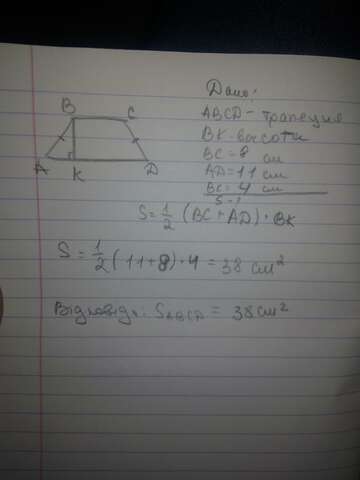 Дано:
B C
ABCD - трапеция
BK - высоты
BC = 8 см
A K D
AD = 11 см
BC = 4 см
S - ?
S = 1/2 (BC + AD) · BK
S = 1/2 (11 + 8) · 4 = 38 см²
Відповідь: S ABCD = 38 см²